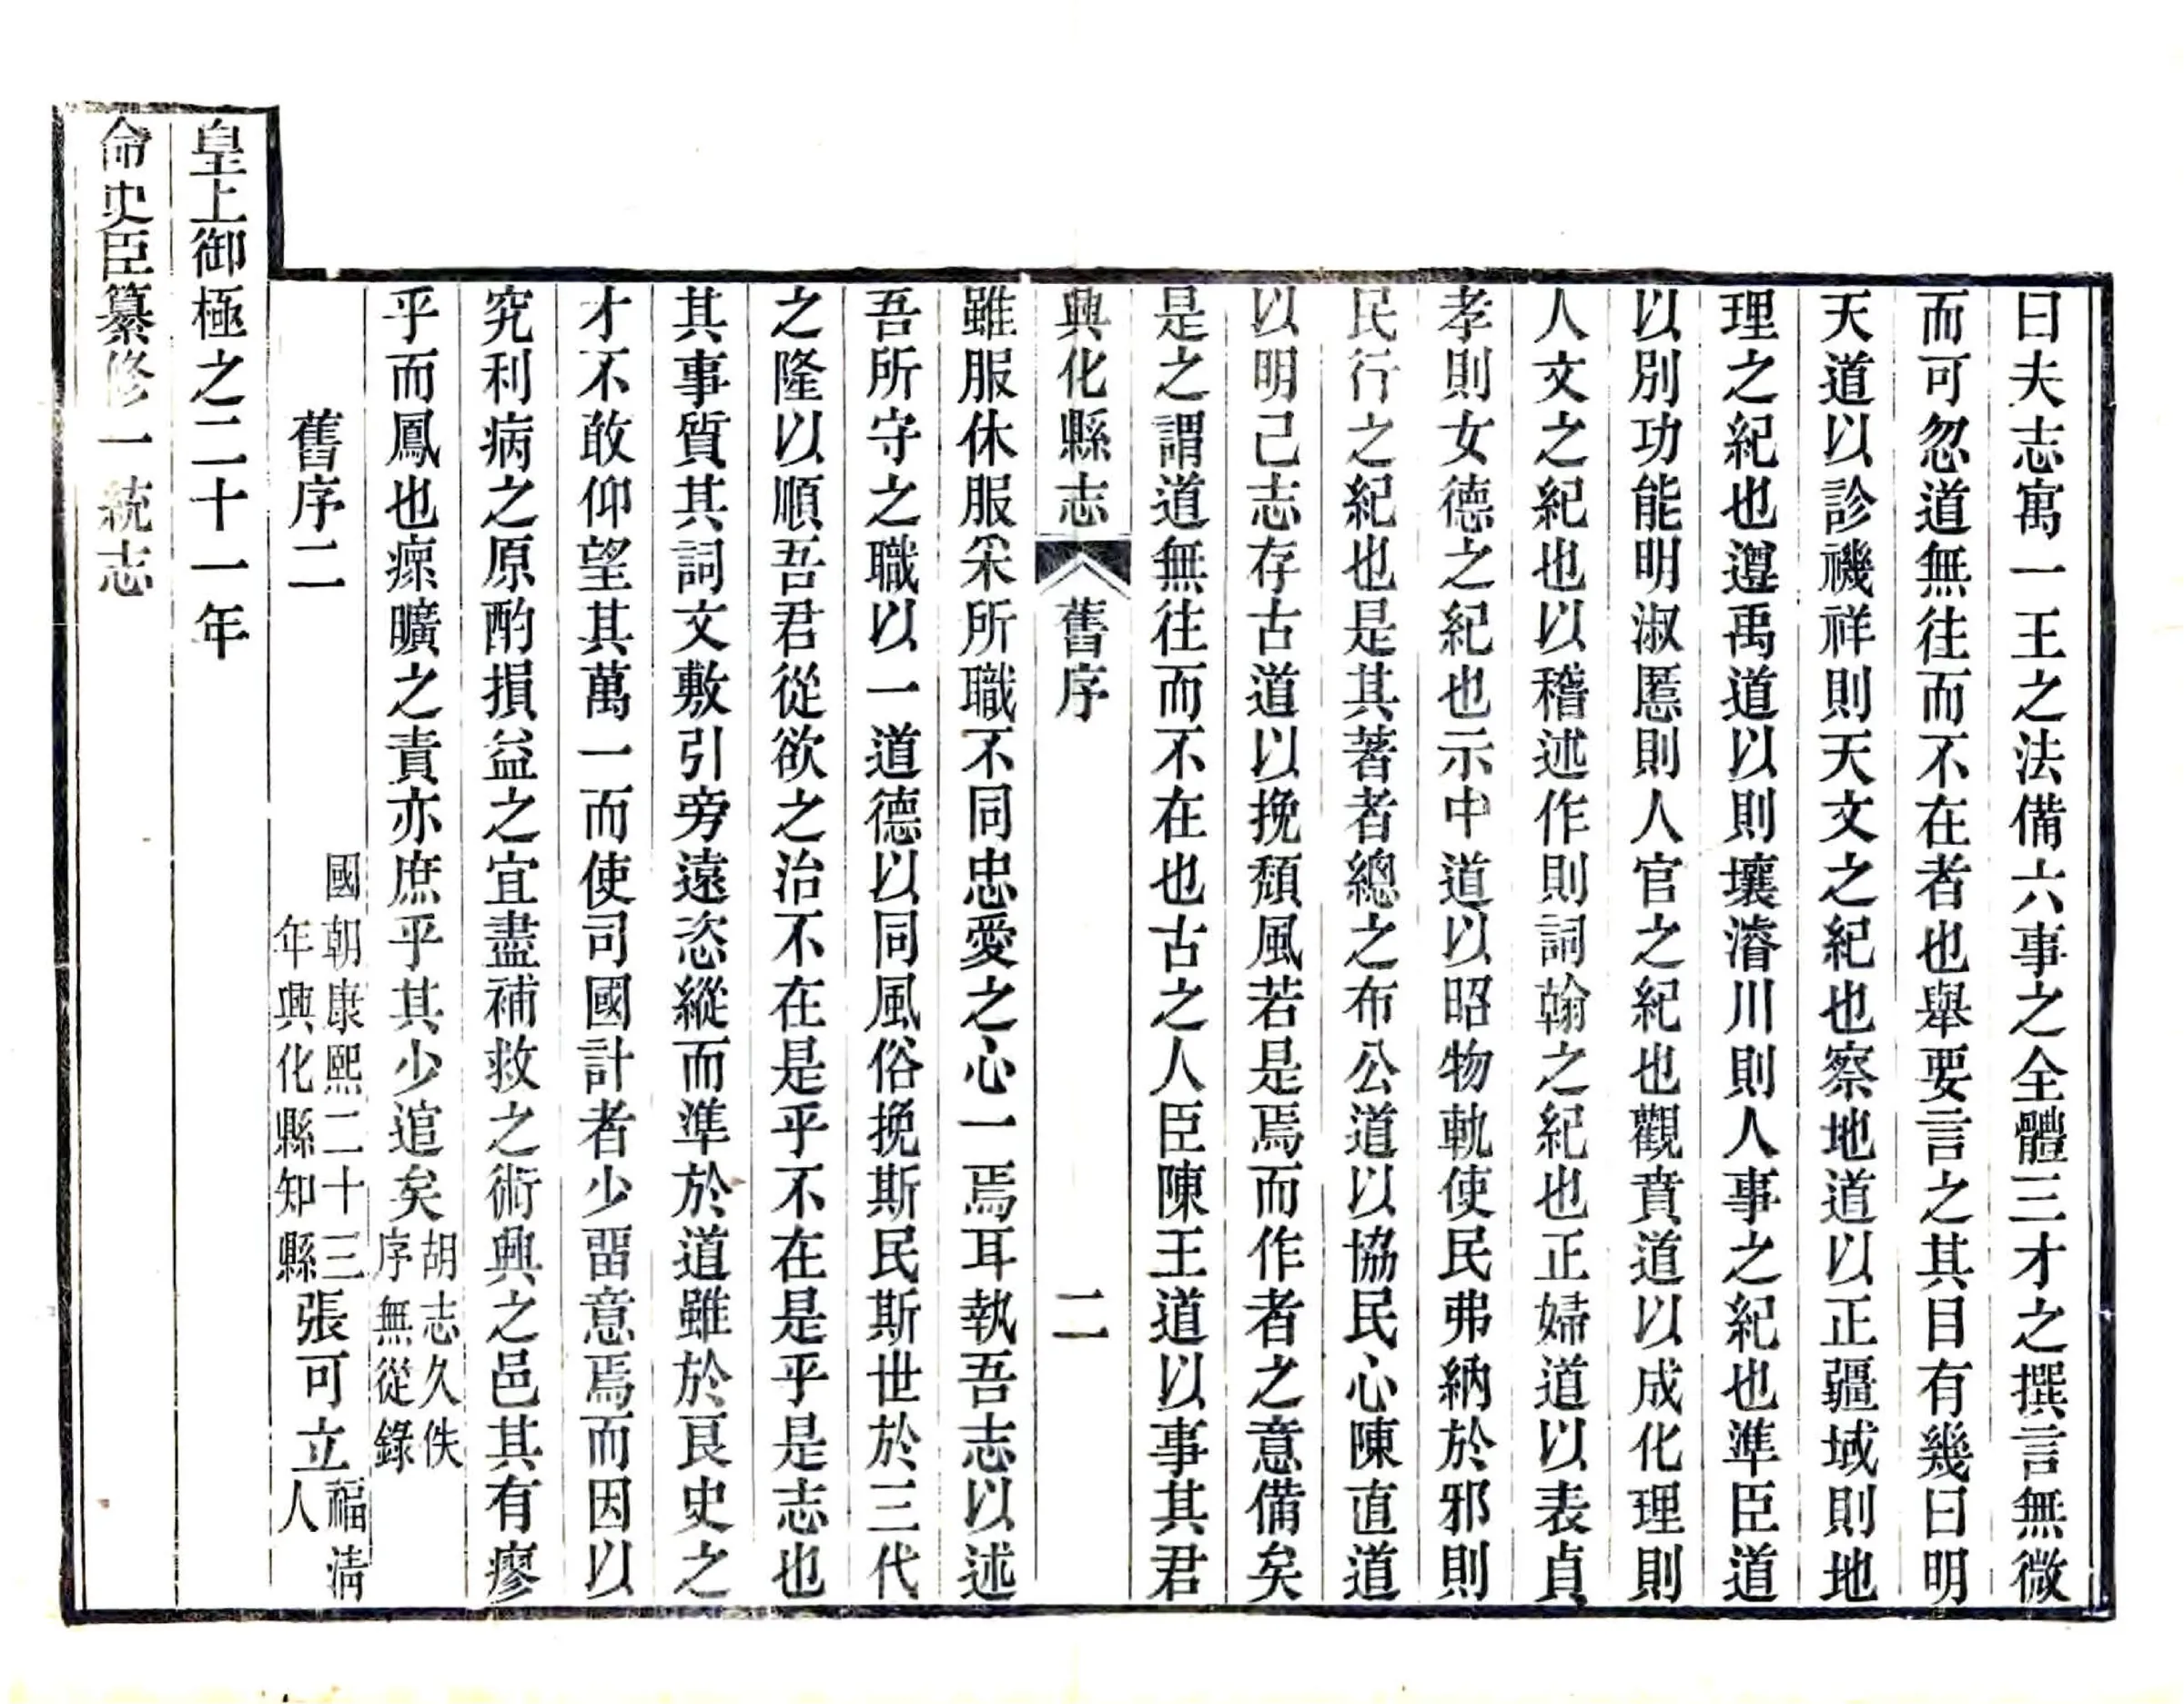 曰夫志寓一王之法備六事之全體三才之撰言無微
而可忽道無往而不在者也舉要言之其目有幾曰明
天道以診禨祥則天文之紀也察地道以正疆域則地
理之紀也遵禹道以則壤濬川則人事之紀也準臣道
以別功能明淑慝則人官之紀也觀賁道以成化理則
人文之紀也以稽述作則詞翰之紀也正婦道以表貞
孝則女德之紀也示中道以昭物軌使民弗納於邪則
民行之紀也是其著者總之布公道以協民心陳直道
以明己志存古道以挽頽風若是焉而作者之意備矣
是之謂道無往而不在也古之人臣陳王道以事其君
興化縣志 舊序 二
雖服休服采所職不同忠愛之心一焉耳執吾志以述
吾所守之職以一道德以同風俗挽斯民斯世於三代
之隆以順吾君從欲之治不在是乎不在是乎是志也
其事質其詞文敷引旁遠恣縱而準於道雖於良史之
才不敢仰望其萬一而使司國計者少畱意焉而因以
究利病之原酌損益之宜盡補救之術興之邑其有瘳
乎而鳳也瘝曠之責亦庶乎其少逭矣胡志久佚序無從錄
舊序二 國朝康熙二十三年興化縣知縣張可立福淸人
皇上御極之二十一年
命史臣纂修一統志